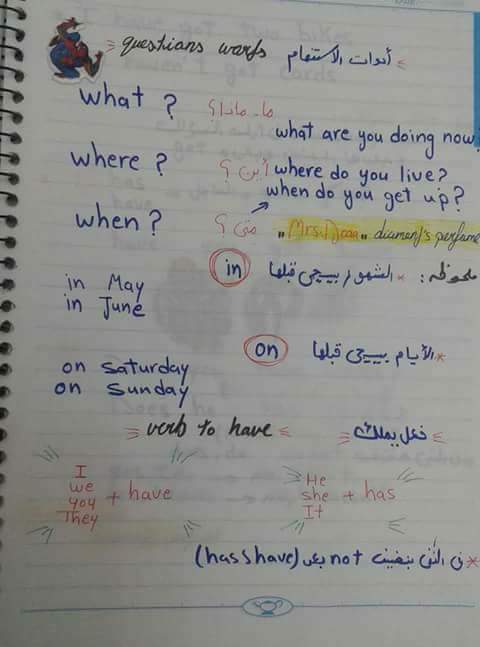 questians warfs أدوات الاستفهام
what ? ما - ماذا ؟
what are you doing now?
where ? أين ؟ where do you live?
when do you get up?
when ? متى ؟ " Mrs. "
in ملحوظة : * الشهور بييجى قبلها
in May
in June
on * الأيام بييجى قبلها
on Saturday
on Sunday
verb to have فعل يملك
I
we
you
They + have
He
she
It + has
* فى النفى بنضيف not بعد (has & have)